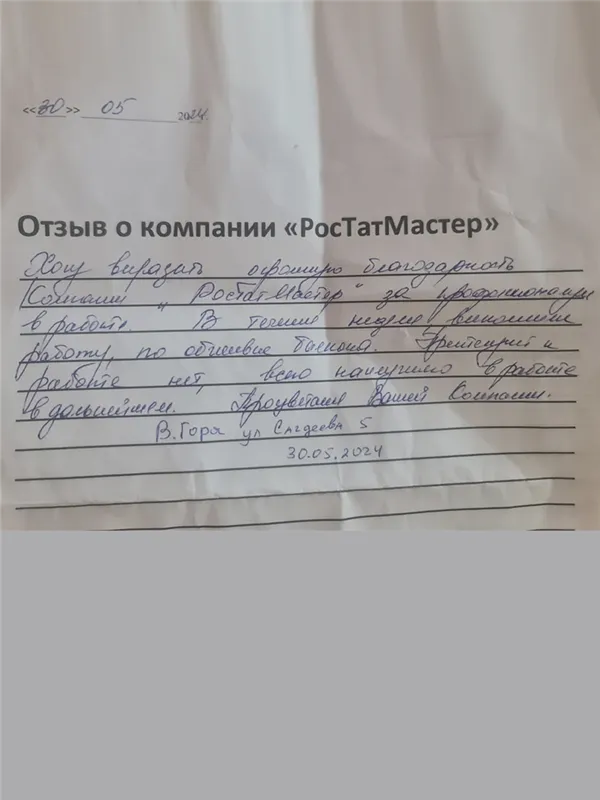 «30» 05 2024.
Отзыв о компании «РосТатМастер»
Хочу виразить огромную благодарность
Компании „РостатМастер" за профессионализм
в работе. В течение недели выполнили
работу, по обшивке балкона. Притензий к
работе нет, всего наилучшего в работе
в дальнейшем. Процветания Вашей Компании.
В.Гора ул Сагдеева 5
30.05.2024